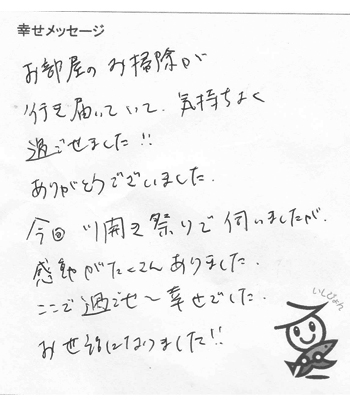 幸せメッセージ
お部屋のお掃除が
行き届いていて、気持ちよく
過ごせました!!
ありがとうございました.
今回 川開き祭りで伺いましたが、
感動がたくさんありました.
ここで過ごせ〜幸せでした.
お世話になりました!!
いしぴょん